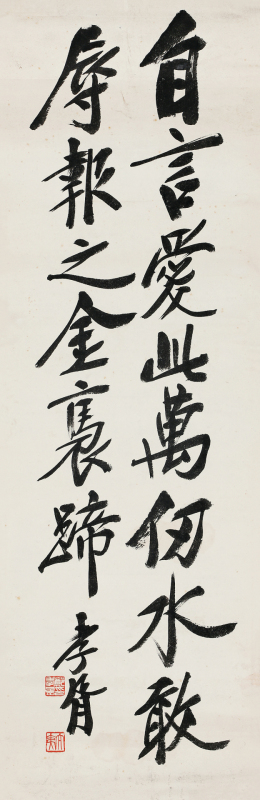 自言愛此萬仞水敢
辱報之金裹蹄
孝胥